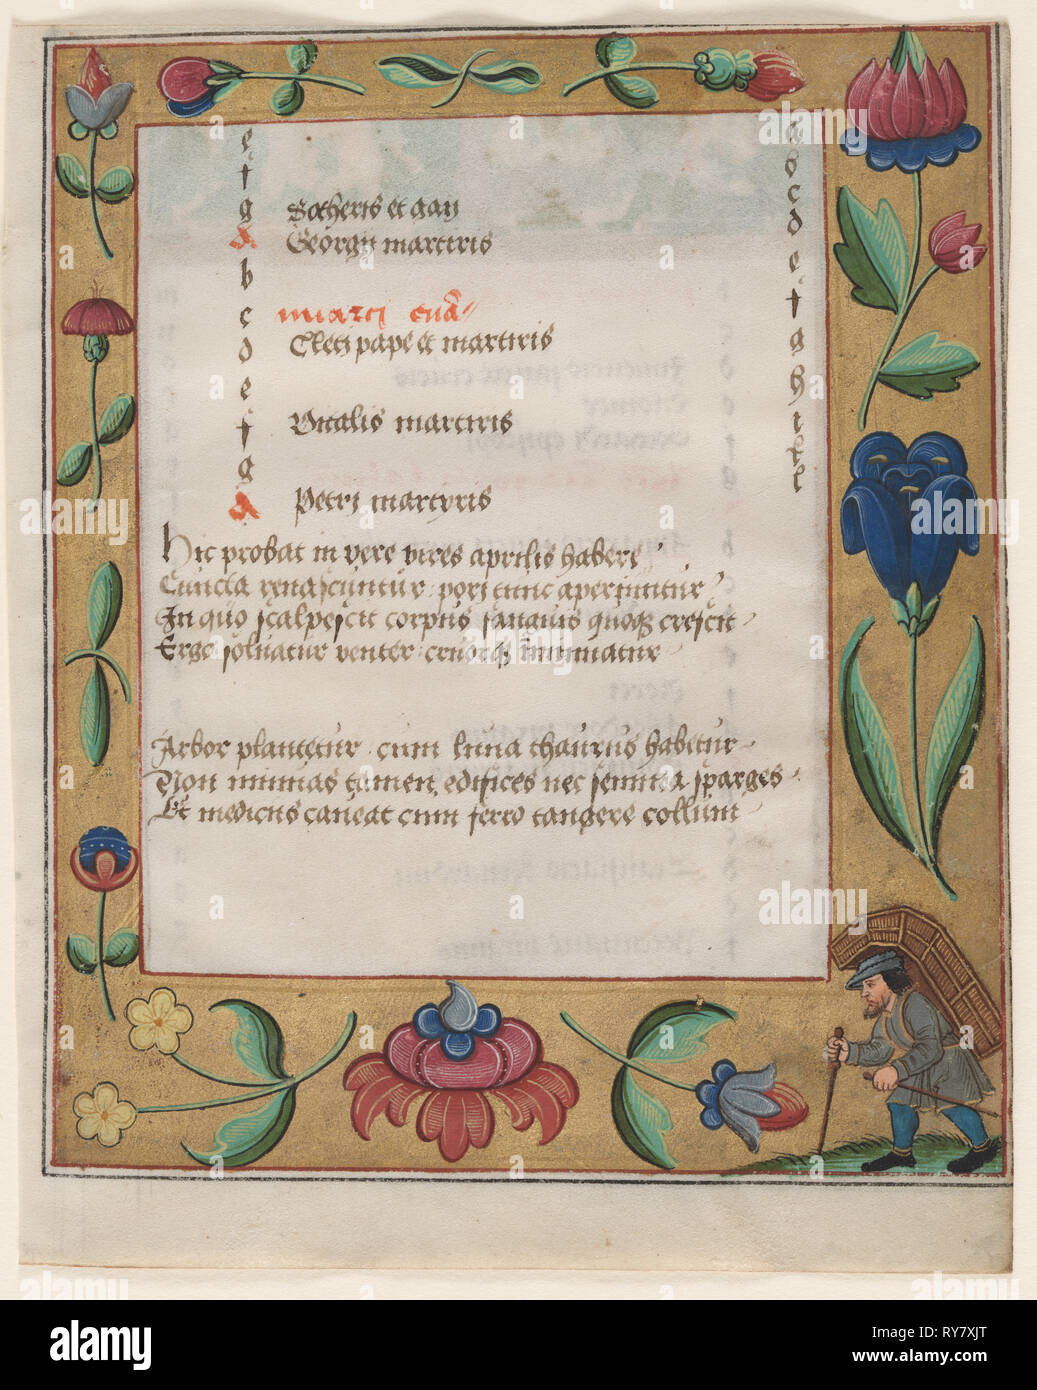 e a
f b
g Sotheris et gay c
A Georgij martiris d
b e
c marci eua f
d Cleti pape et martiris g
e h
f Vitalis martiris i
g k
A Petri martyris l
Hic probat in vere vires aprilis habere
Cuncta renascuntur pori tunc aperiuntur
In quo scalpescit corpus sanguis quoqz crescit
Ergo soluatur venter cruorqz minuatur
Arbor plantetur cum luna thaurus habetur
Non minuas tamen edifices nec semina sparges
Et medicus caueat cum ferro tangere collum
alamy
Image ID: RY7XJT
www.alamy.com